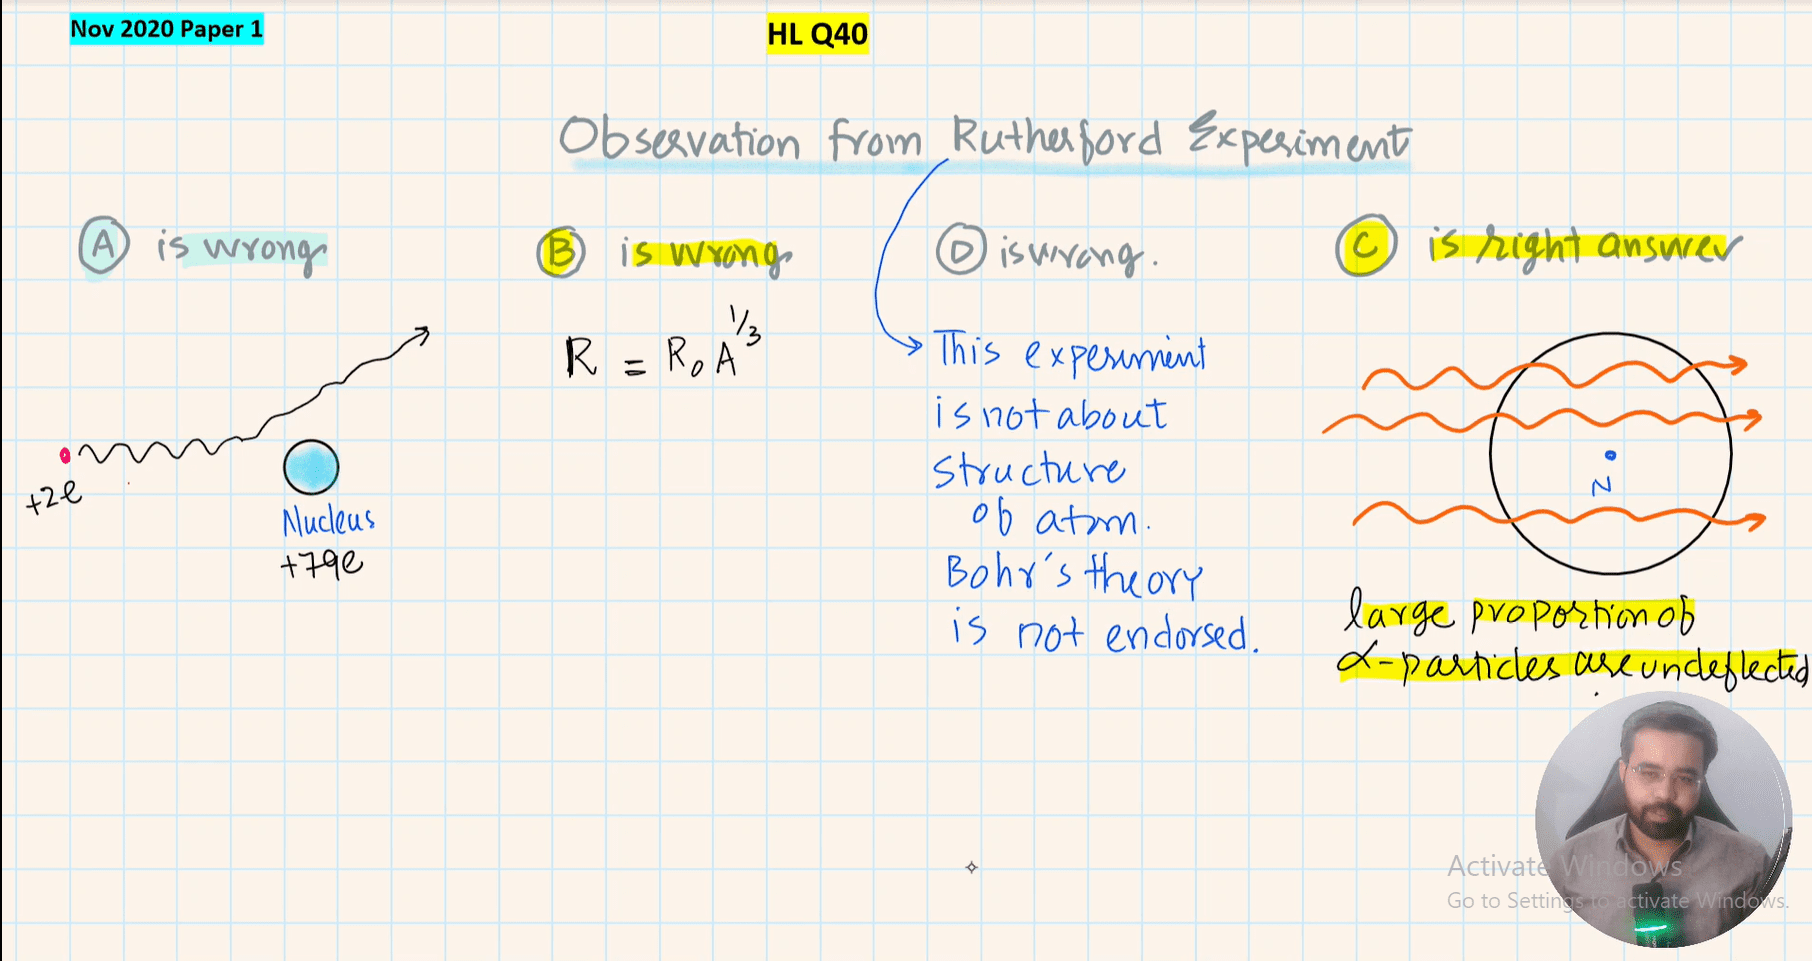 Nov 2020 Paper 1
HL Q40
Observation from Rutherford Experiment
A is wrong
+2e
Nucleus
+79e
B is wrong
R = R₀A^1/3
D is wrong.
This experiment
is not about
structure
of atom.
Bohr's theory
is not endorsed.
C is right answer
N
large proportion of
α-particles are undeflected
Activate Windows
Go to Settings to activate Windows.